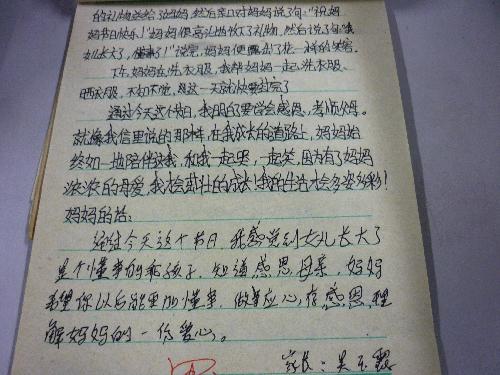 的礼物送给了妈妈,然后亲口对妈妈说了句:"祝妈
妈节日快乐!"妈妈便高兴地收下了礼物,然后说了句:"女
儿长大了,懂事了!"说完,妈妈便露出了花一样的笑容。
下午,妈妈在洗衣服,我帮妈妈一起洗衣服、
晒衣服,不知不觉,这一天就快要过完了
通过今天这个节日,我明白了要学会感恩,孝顺父母。
就像我信里说的那样,在我成长的道路上,妈妈始
终如一地陪伴这我,和我一起哭,一起笑,因为有了妈妈
浓浓的母爱,我才会茁壮的成长!我的生活才会多姿多彩!
妈妈的话:
经过今天这个节日,我感觉到女儿长大了
是个懂事的乖孩子,知道感恩母亲,妈妈
希望你以后能更加懂事,做事应心存感恩,理
解妈妈的一份爱心。
家长:吴玉霞